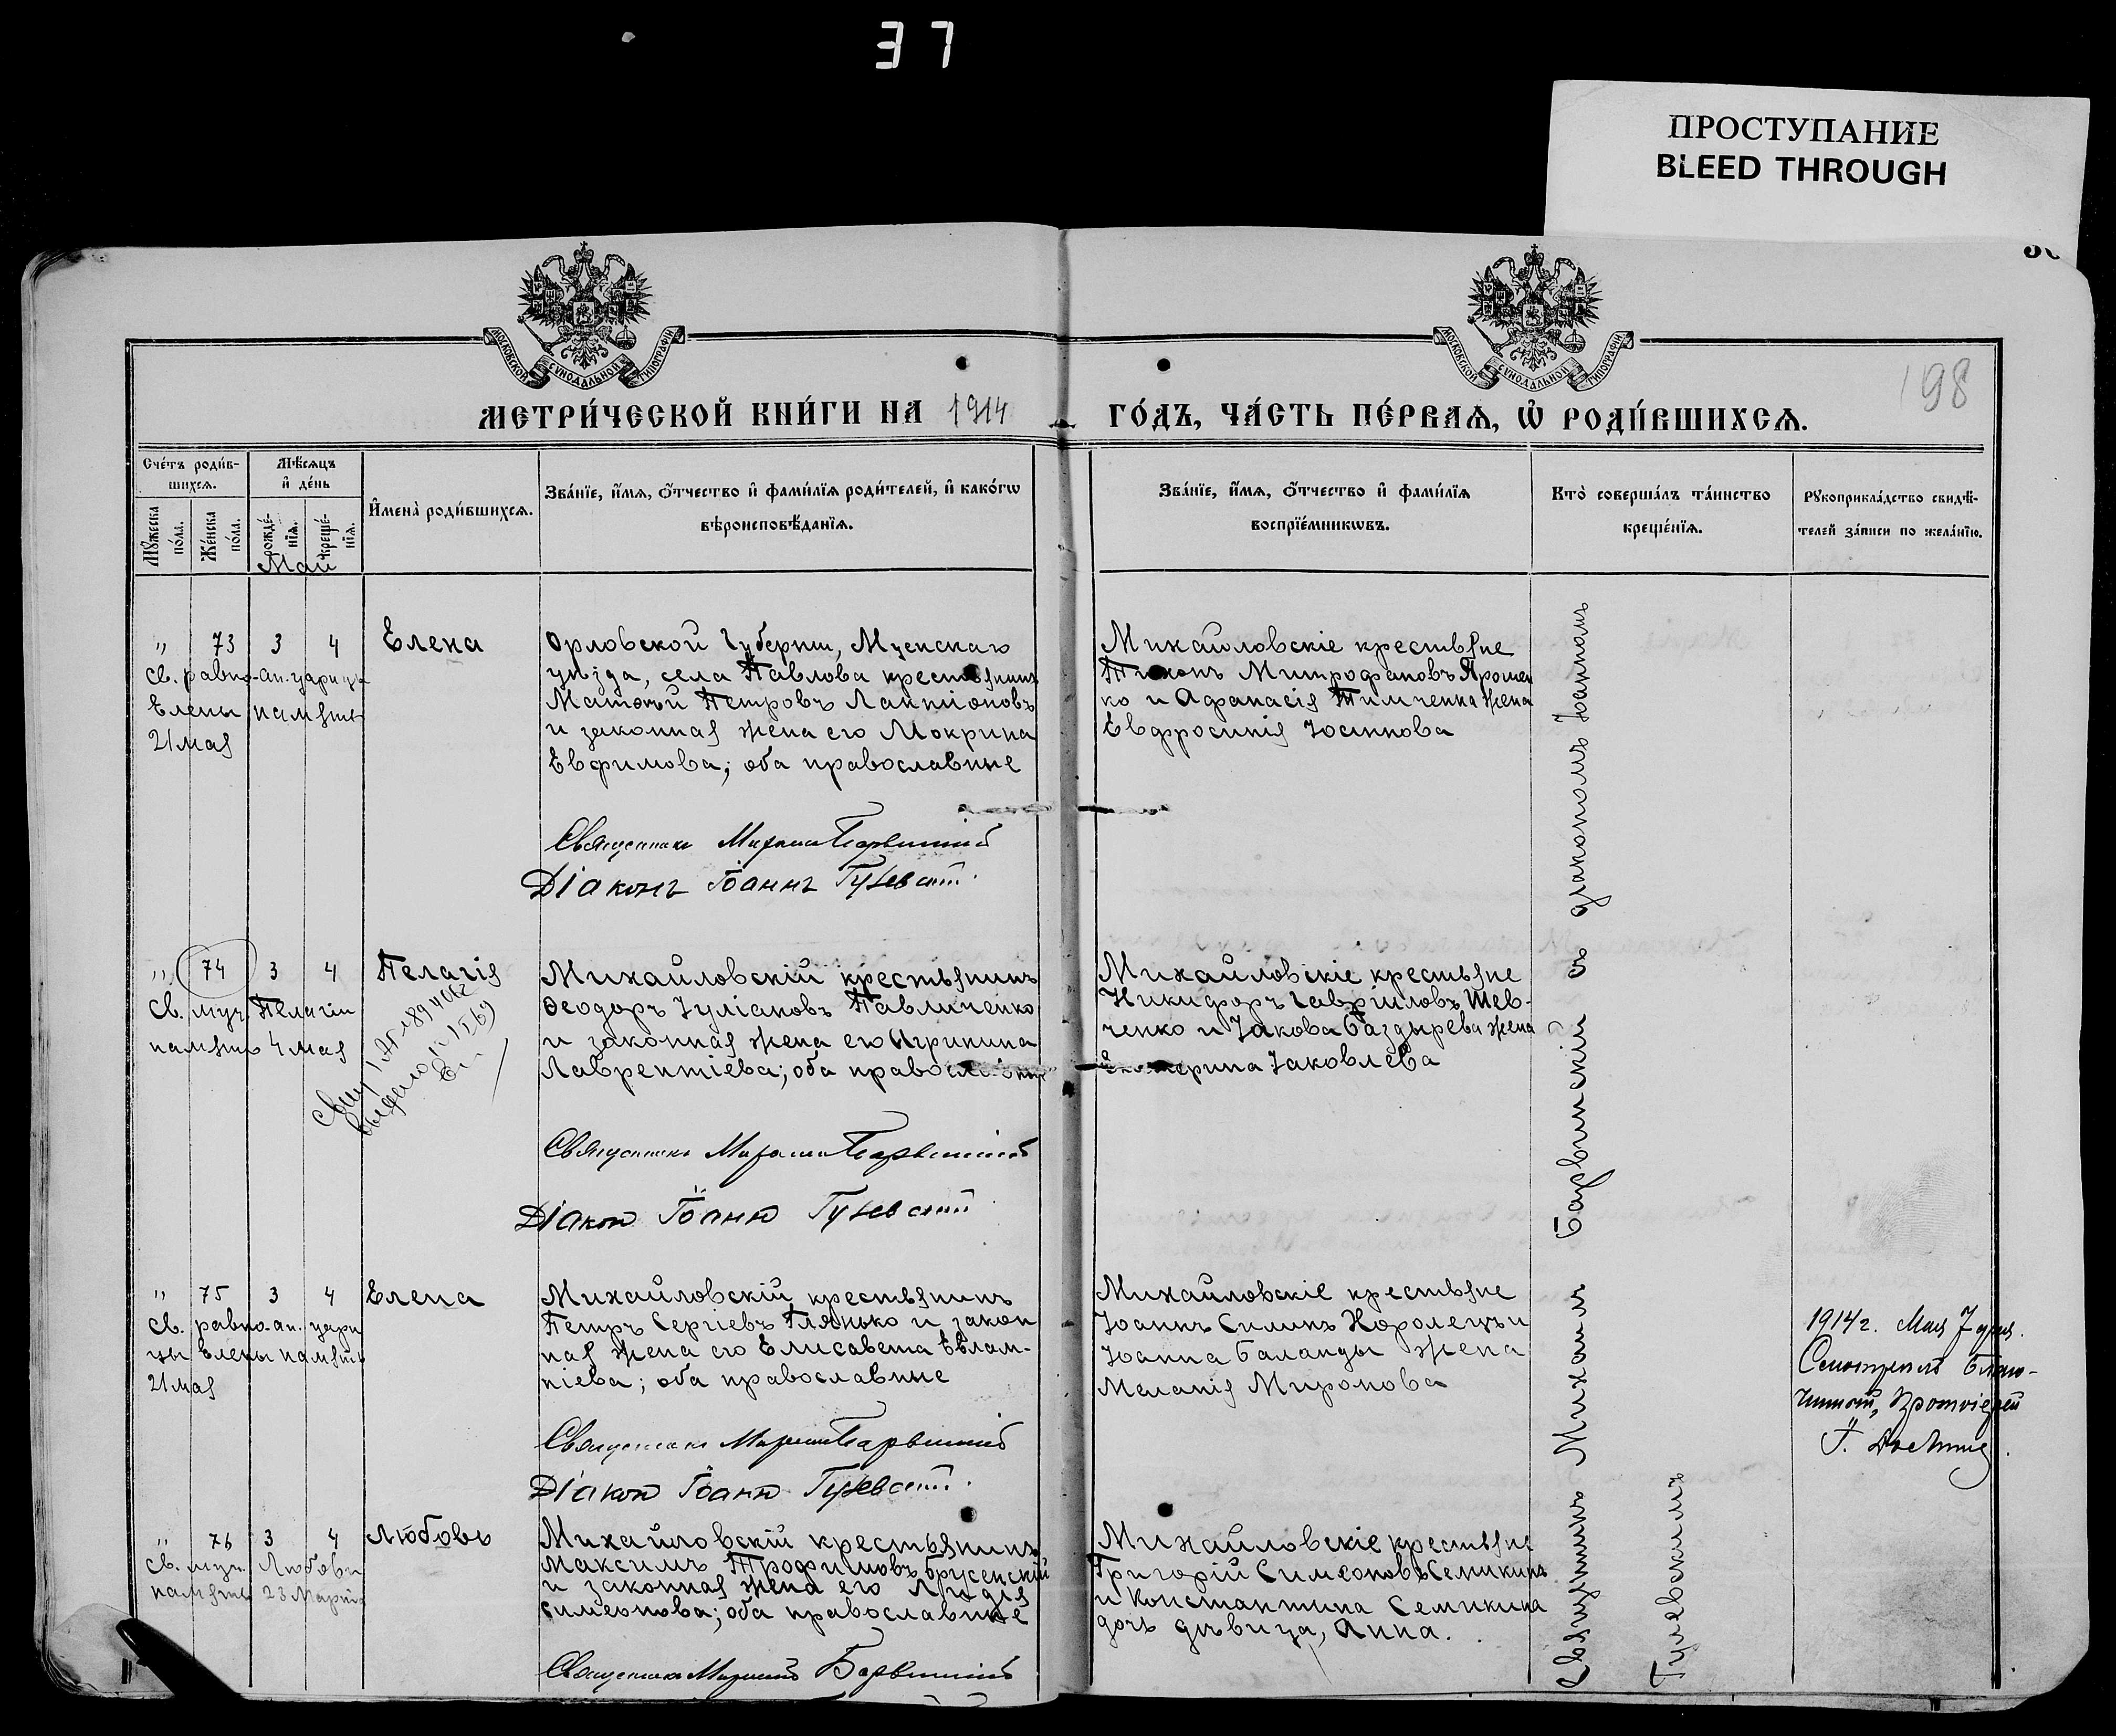 37
ПРОСТУПАНИЕ
BLEED THROUGH
МОСКОВСКОЙ СѴНОДАЛЬНОЙ ТИПОГРАФІИ
МОСКОВСКОЙ СѴНОДАЛЬНОЙ ТИПОГРАФІИ
198
МЕТРИ́ЧЕСКОЙ КНИ́ГИ НА 1914 ГО́ДЪ, ЧА́СТЬ ПЕ́РВАЯ, Ѡ҆ РОДИ́ВШИХСЯ.
Сче́тъ роди́в-
шихся.
Мꙋ́жеска по́ла.
Же́нска по́ла.
Мѣ́сяцъ
и҆ де́нь
рожде́-
нїя.
креще́-
нїя.
Май
И҆мена̀ роди́вшихся.
Зва́нїе, и҆́мя, ѻ҆́тчество и҆ фами́лїя роди́телей, и҆ како́гѡ
вѣроисповѣ́данїя.
Зва́нїе, и҆́мя, ѻ҆́тчество и҆ фами́лїя
воспрїе́мникѡвъ.
Кто̀ соверша́лъ та́инство
креще́нїя.
Рꙋкоприкла́дство свидѣ́-
телей за́писи по жела́нїю.
„ 73 3 4 Елена
св. равно-ап. царицы
Елены память
21 мая
Орловской Губерніи, Мценскаго
уѣзда, села Павлова крестьянинъ
Матѳей Петровъ Лактіоновъ
и законная жена его Мокрина
Евфимова; оба православные
Священникъ Михаилъ Барвинскій
Діаконъ Іоаннъ Гулевскій
Михайловскіе крестьяне
Тихонъ Митрофановъ Яромен
ко и Афанасія Тимченка жена
Евфросинія Іоаннова
„ 74 3 4 Пелагія
Св. муч. Пелагіи
память 4 мая
Михайловскій крестьянинъ
Ѳеодоръ Іуліановъ Павличенко
и законная жена его Агрипина
Лаврентіева; оба православные
Священникъ Михаилъ Барвинскій
Діакон Іоанн Гулевскій
Михайловскіе крестьяне
Никифоръ Гавріиловъ Шев-
ченко и Іакова Баздырева жена
Екатерина Іаковлева
„ 75 3 4 Елена
св. равно-ап. цари
цы Елены память
21 мая
Михайловскій крестьянинъ
Петръ Сергіевъ Глянько и закон
ная жена его Елисавета Евлам-
піева; оба православные
Священникъ Михаилъ Барвинскій
Діакон Іоанн Гулевскій
Михайловскіе крестьяне
Іоаннъ Силинъ Королецъ и
Іоанна Баланды жена
Меланія Миронова
1914 г. Мая 7 дня.
Смотрѣлъ Благо-
чинный, Протоіерей
„ 76 3 4 Любовь
св. муч. Любови
память 28 Марта
Михайловскій крестьянинъ
Максимъ Трофимовъ Брусенскій
и законная жена его Лидія
Симеонова; оба православные
Священникъ Михаилъ Барвинскій
Михайловскіе крестьяне
Григорій Симеоновъ Семикинъ
и Константина Семикина
дочь дѣвица, Анна.
Священникъ Михаилъ Барвинскій съ діакономъ Іоанномъ
Гулевскимъ